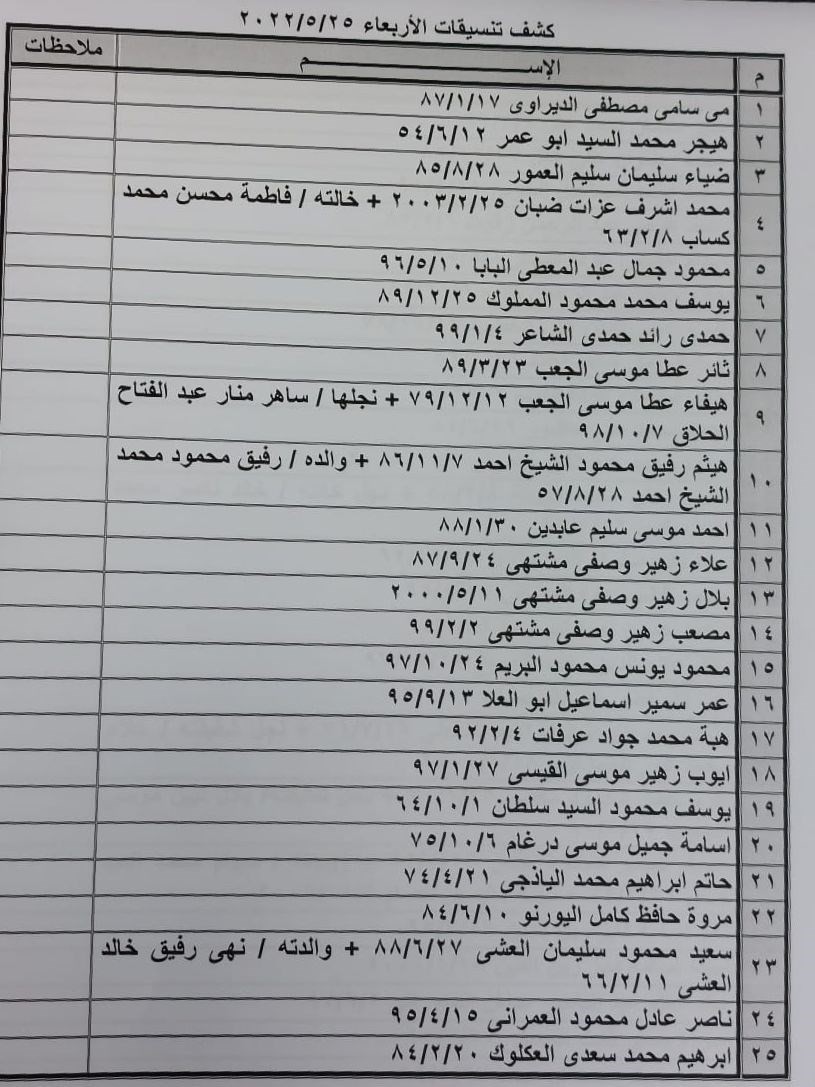 كشف تنسيقات الأربعاء ٢٠٢٢/٥/٢٥
م الإســـــــــم ملاحظات
١ مى سامى مصطفى الديراوى ٨٧/١/١٧
٢ هيجر محمد السيد ابو عمر ٥٤/٦/١٢
٣ ضياء سليمان سليم العمور ٨٥/٨/٢٨
٤ محمد اشرف عزات ضبان ٢٠٠٣/٢/٢٥ + خالته / فاطمة محسن محمد
كساب ٦٣/٢/٨
٥ محمود جمال عبد المعطى البابا ٩٦/٥/١٠
٦ يوسف محمد محمود المملوك ٨٩/١٢/٢٥
٧ حمدى رائد حمدى الشاعر ٩٩/١/٤
٨ ثائر عطا موسى الجعب ٨٩/٣/٢٣
٩ هيفاء عطا موسى الجعب ٧٩/١٢/١٢ + نجلها / ساهر منار عبد الفتاح
الحلاق ٩٨/١٠/٧
١٠ هيثم رفيق محمود الشيخ احمد ٨٦/١١/٧ + والده / رفيق محمود محمد
الشيخ احمد ٥٧/٨/٢٨
١١ احمد موسى سليم عابدين ٨٨/١/٣٠
١٢ علاء زهير وصفى مشتهى ٨٧/٩/٢٤
١٣ بلال زهير وصفى مشتهى ٢٠٠٠/٥/١١
١٤ مصعب زهير وصفى مشتهى ٩٩/٢/٢
١٥ محمود يونس محمود البريم ٩٧/١٠/٢٤
١٦ عمر سمير اسماعيل ابو العلا ٩٥/٩/١٣
١٧ هبة محمد جواد عرفات ٩٢/٢/٤
١٨ ايوب زهير موسى القيسى ٩٧/١/٢٧
١٩ يوسف محمود السيد سلطان ٦٤/١٠/١
٢٠ اسامة جميل موسى درغام ٧٥/١٠/٦
٢١ حاتم ابراهيم محمد الياذجى ٧٤/٤/٢١
٢٢ مروة حافظ كامل اليورنو ٨٤/٦/١٠
٢٣ سعيد محمود سليمان العشى ٨٨/٦/٢٧ + والدته / نهى رفيق خالد
العشى ٦٦/٢/١١
٢٤ ناصر عادل محمود العمرانى ٩٥/٤/١٥
٢٥ ابرهيم محمد سعدى العكلوك ٨٤/٢/٢٠